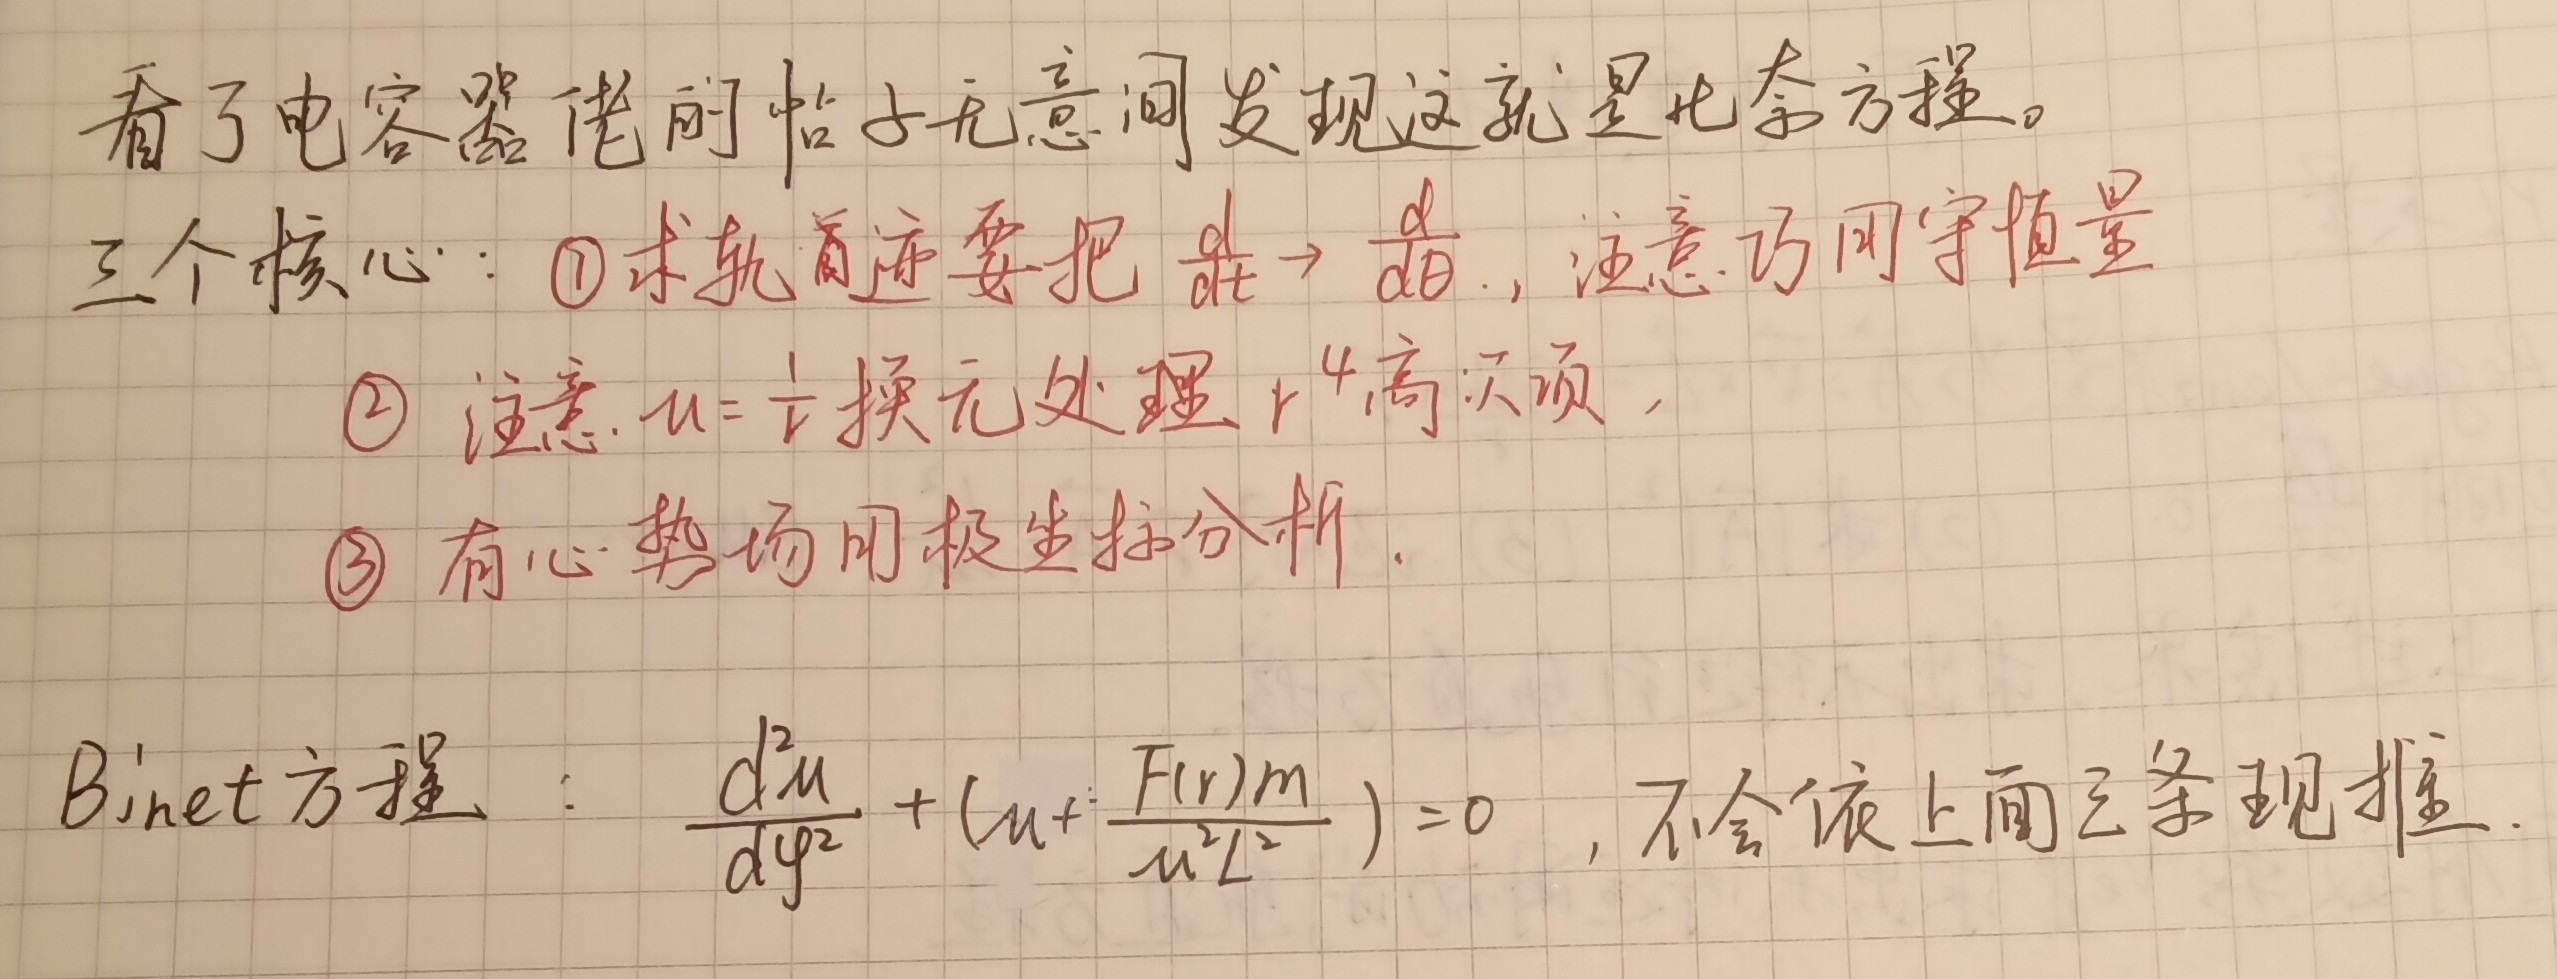 看了电容器佬的帖子无意间发现这就是比奈方程。
三个核心：①求轨迹要把 d/dt → d/dθ，注意巧用守恒量
② 注意 u=1/r 换元处理 r⁴高次项，
③ 有心势场用极坐标分析.
Binet方程： d²u/dφ² + (u + F(r)m/u²L²) = 0，不会依上面三条现推.